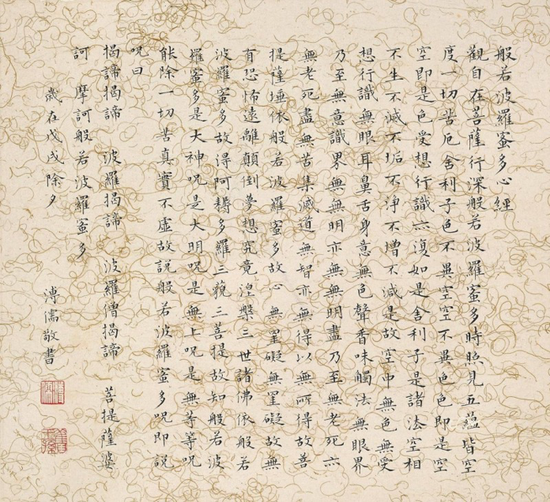 般若波羅蜜多心經
觀自在菩薩行深般若波羅蜜多時照見五蘊皆空
度一切苦厄舍利子色不異空空不異色色即是空
空即是色受想行識亦復如是舍利子是諸法空相
不生不滅不垢不淨不增不減是故空中無色無受
想行識無眼耳鼻舌身意無色聲香味觸法無眼界
乃至無意識界無無明亦無無明盡乃至無老死亦
無老死盡無苦集滅道無智亦無得以無所得故菩
提薩埵依般若波羅蜜多故心無罣礙無罣礙故無
有恐怖遠離顛倒夢想究竟涅槃三世諸佛依般若
波羅蜜多故得阿耨多羅三藐三菩提故知般若波
羅蜜多是大神呪是大明呪是無上呪是無等等呪
能除一切苦真實不虛故說般若波羅蜜多呪即說
呪曰
揭諦揭諦 波羅揭諦 波羅僧揭諦 菩提薩婆
訶 摩訶般若波羅蜜多
歲在戊戌除夕
溥儒敬書